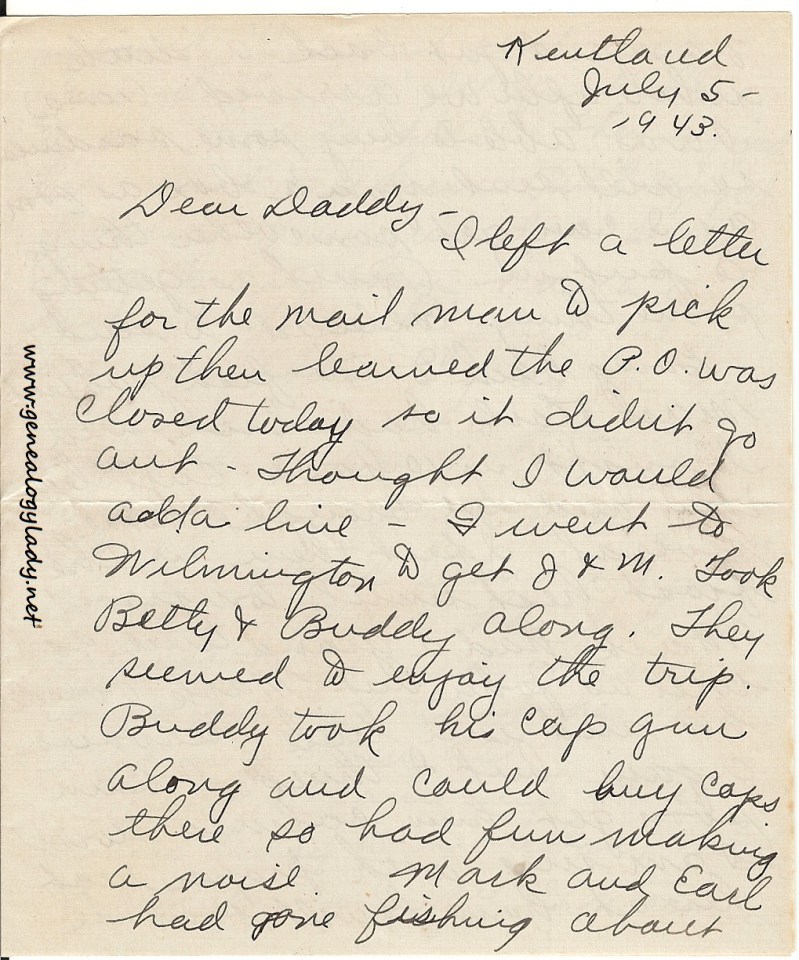 Kentland
July 5-
1943.
Dear Daddy-
I left a letter
for the mail man to pick
up then learned the P.O. was
closed today so it didn't go
out - Thought I would
add a line - I went to
Wilmington to get J & M. Took
Betty & Buddy along. They
seemed to enjoy the trip.
Buddy took his cap gun
along and could buy caps
there so had fun making
a noise. Mark and Earl
had gone fishing about
www.genealogylady.net